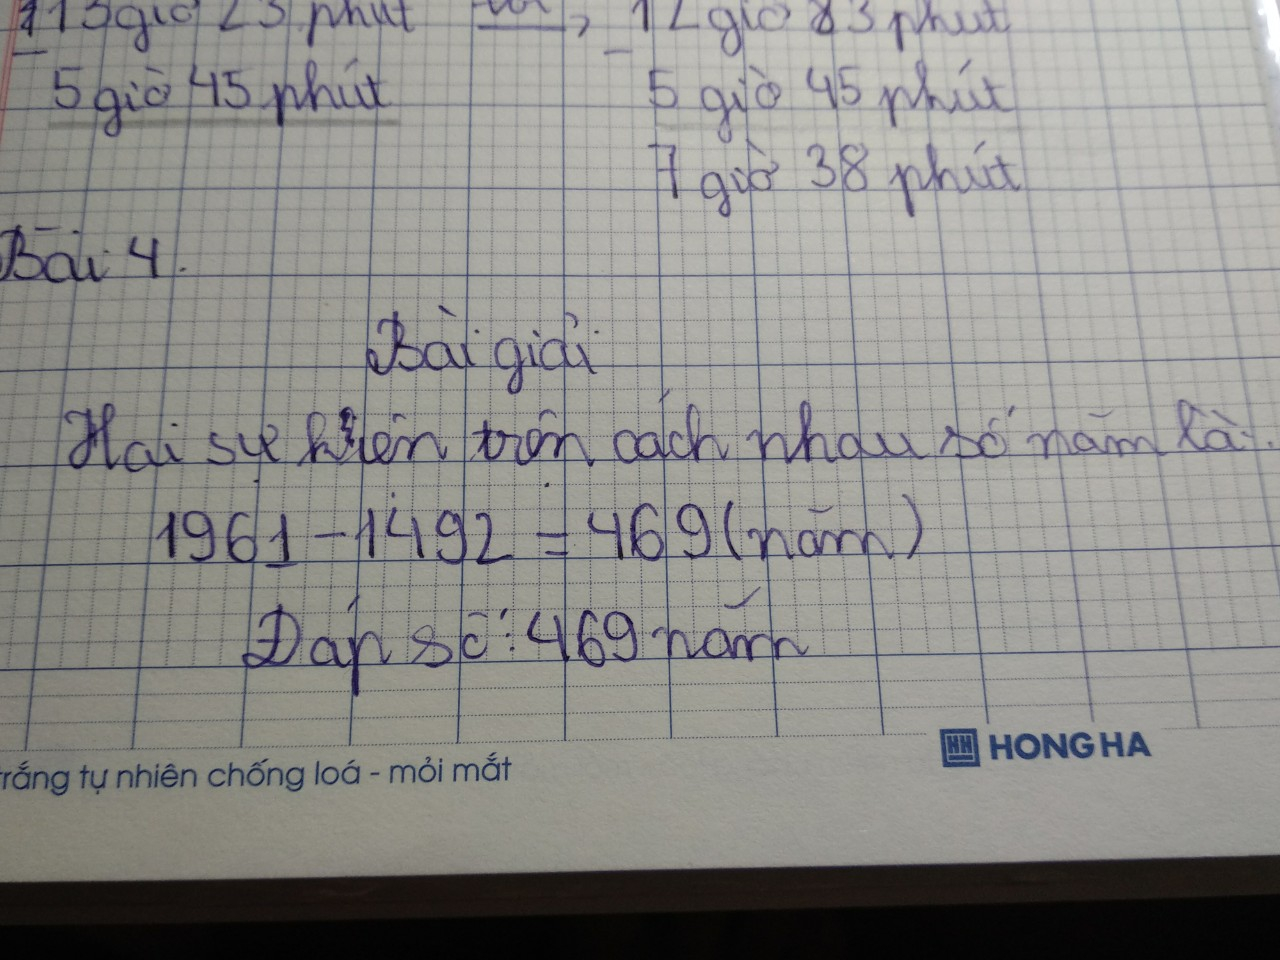 13 giờ 23 phút 12 giờ 83 phút
- -
5 giờ 45 phút 5 giờ 45 phút
7 giờ 38 phút
Bài 4.
Bài giải
Hai sự kiện trên cách nhau số năm là:
1961 - 1492 = 469 (năm)
Đáp số: 469 năm
HH HONG HA
trắng tự nhiên chống loá - mỏi mắt